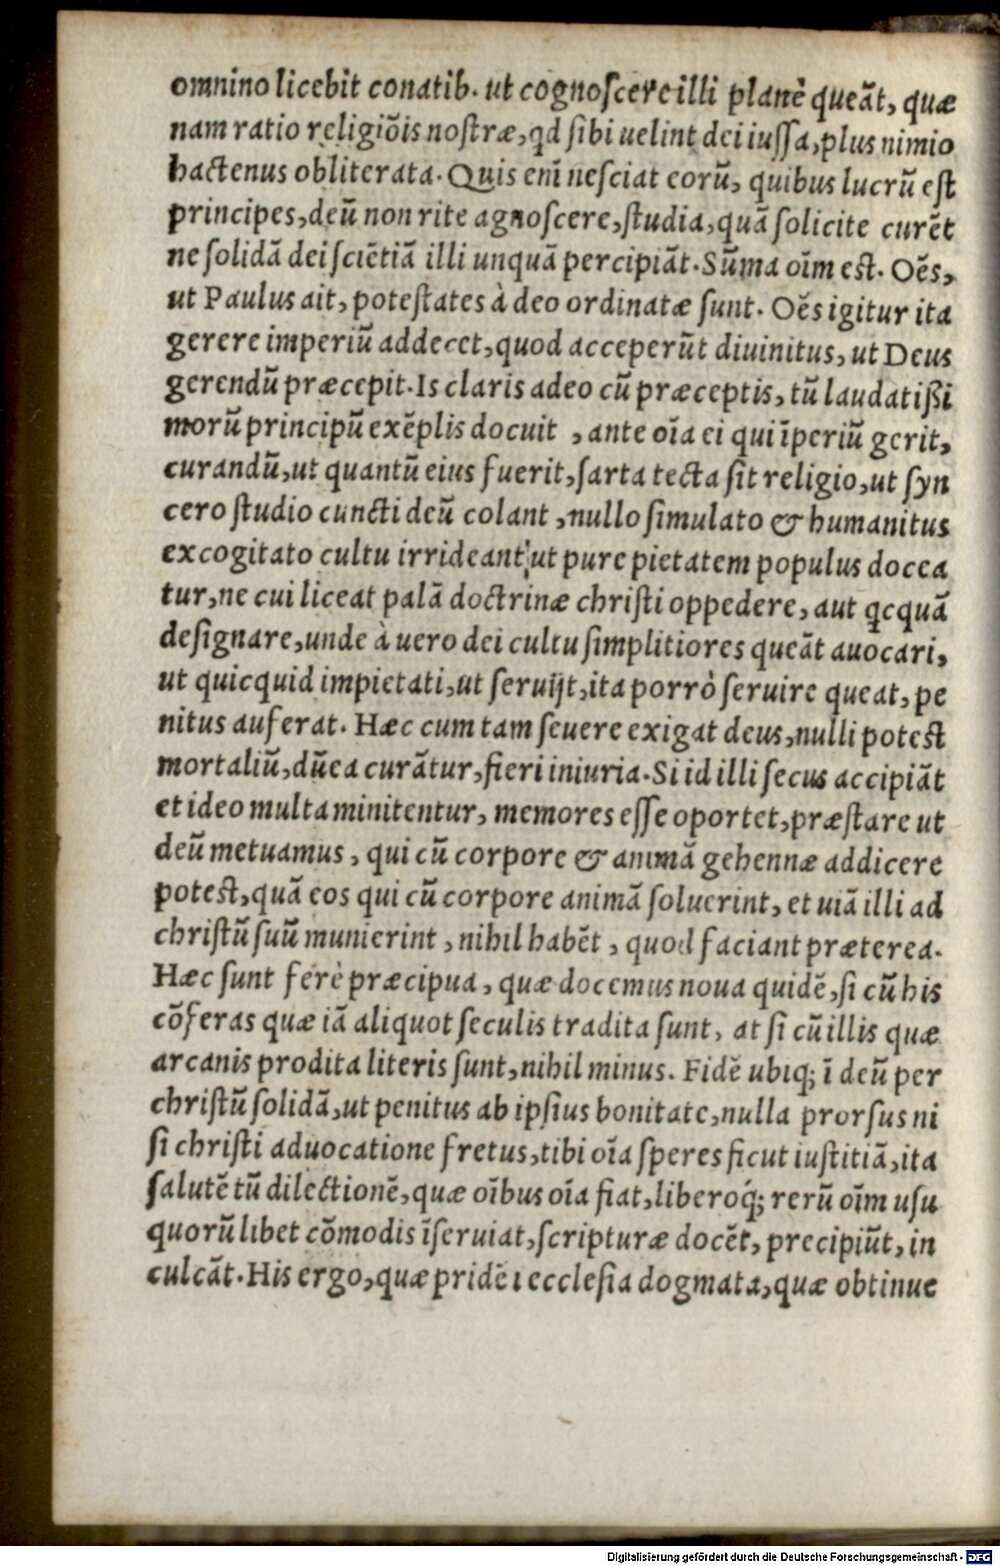 omnino licebit conatib. ut cognoſcere illi planè queãt, quæ
nam ratio religiõis noſtræ, qd ſibi uelint dei iuſſa, plus nimio
hactenus obliterata. Quis enĩ neſciat eorũ, quibus lucrũ eſt
principes, deũ non rite agnoſcere, ſtudia, quã ſolicite curẽt
ne ſolidã dei ſciẽtiã illi unquã percipiãt. Sũma oĩm eſt. Oẽs,
ut Paulus ait, poteſtates à deo ordinatæ ſunt. Oẽs igitur ita
gerere imperiũ addecet, quod acceperũt diuinitus, ut Deus
gerendũ præcepit. Is claris adeo cũ præceptis, tũ laudatißi
morũ principũ exẽplis docuit , ante oĩa ei qui ĩperiũ gerit,
curandũ, ut quantũ eius fuerit, ſarta tecta ſit religio, ut ſyn
cero ſtudio cuncti deũ colant , nullo ſimulato & humanitus
excogitato cultu irrideant, ut pure pietatem populus docea
tur, ne cui liceat palã doctrinæ chriſti oppedere, aut qcquã
deſignare, unde à uero dei cultu ſimplitiores queãt auocari,
ut quicquid impietati, ut ſeruijt, ita porrò ſeruire queat, pe
nitus auferat. Hæc cum tam ſeuere exigat deus, nulli poteſt
mortaliũ, dũ ea curãtur, fieri iniuria. Si id illi ſecus accipiãt
et ideo multa minitentur, memores eſſe oportet, præſtare ut
deũ metuamus , qui cũ corpore & animã gehennæ addicere
poteſt, quã eos qui cũ corpore animã ſoluerint, et uiã illi ad
chriſtũ ſuũ munierint , nihil habẽt , quod faciant præterea.
Hæc ſunt ferè præcipua, quæ docemus noua quidẽ, ſi cũ his
cõferas quæ iã aliquot ſeculis tradita ſunt, at ſi cũ illis quæ
arcanis prodita literis ſunt, nihil minus. Fidẽ ubiq; ĩ deũ per
chriſtũ ſolidã, ut penitus ab ipſius bonitate, nulla prorſus ni
ſi chriſti aduocatione fretus, tibi oĩa ſperes ſicut iuſtitiã, ita
ſalutẽ tũ dilectionẽ, quæ oĩbus oĩa fiat, liberoq́; rerũ oĩm uſu
quorũlibet cõmodis ĩſeruiat, ſcripturæ docẽt, precipiũt, in
culcãt. His ergo, quæ pridẽ ı eccleſia dogmata, quæ obtinue
Digitalisierung gefördert durch die Deutsche Forschungsgemeinschaft - DFG